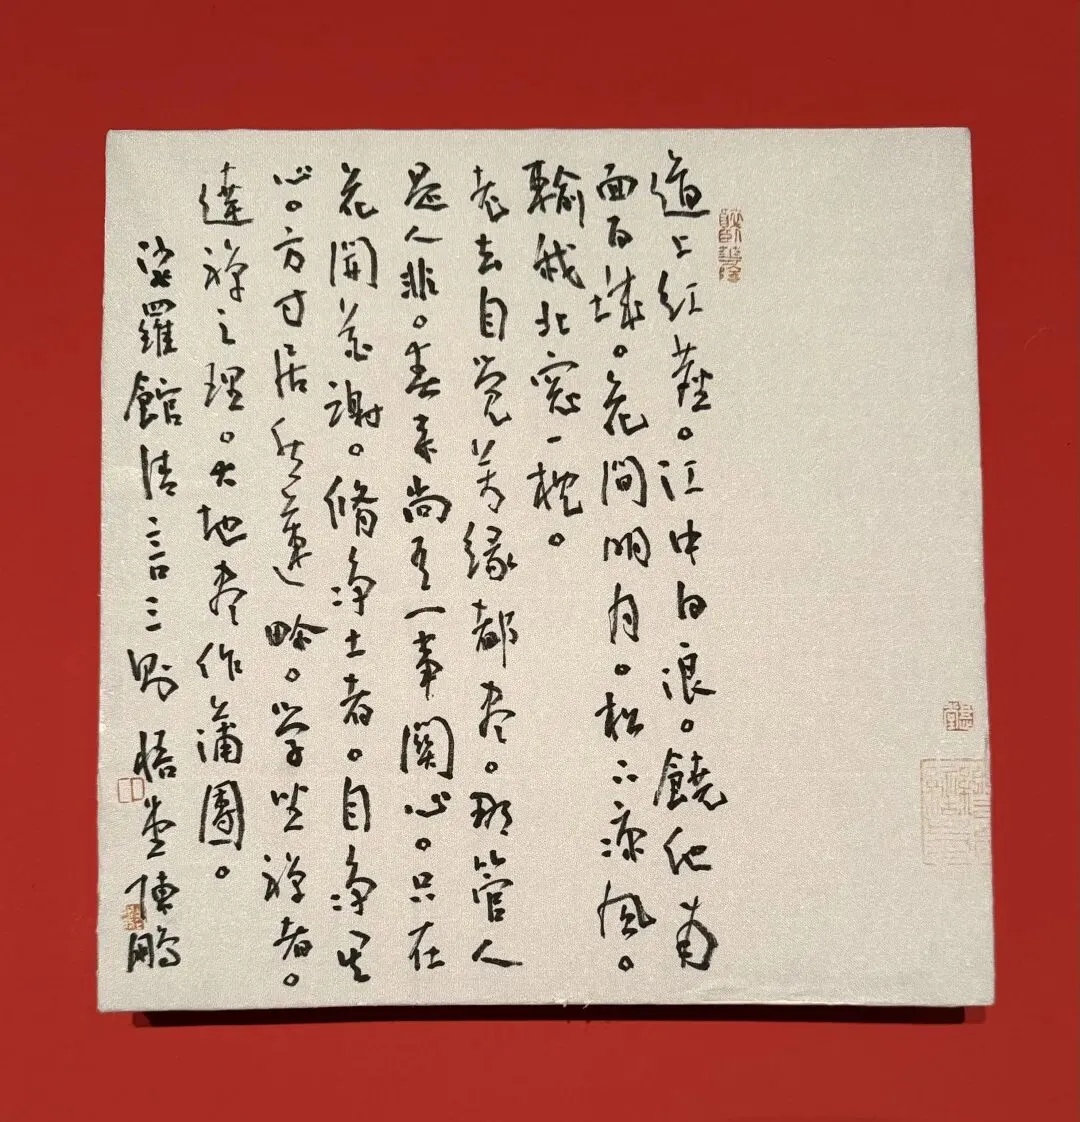 道上紅塵。江中白浪。饒他南
面百城。花間明月。松下凉風。
輸我北窓一枕。
老去自覺萬緣都盡。那管人
是人非。春來尚有一事關心。只在
花開花謝。脩净土者。自净其
心。方寸居然蓮界。學坐禪者。
達禪之理。大地盡作蒲團。
娑羅館清言三則 悟堂陳鵬